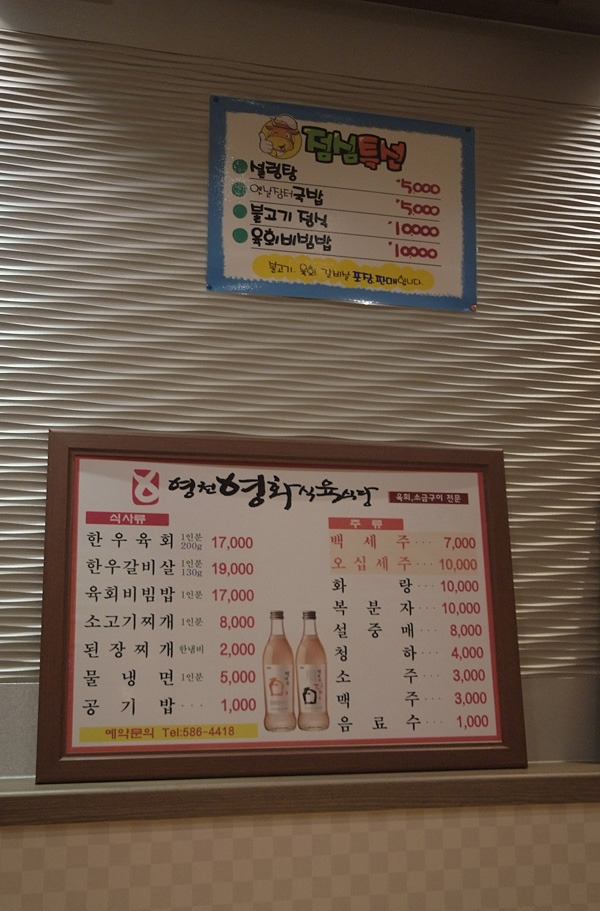 점심특선
설렁탕 5,000
옛날장터국밥 5,000
불고기 정식 10,000
육회비빔밥 10,000
불고기. 육회. 갈비살 포장.판매합니다.
영천영화식육식당
육회,소금구이 전문
식사류
한우육회 1인분 200g 17,000
한우갈비살 1인분 130g 19,000
육회비빔밥 1인분 17,000
소고기찌개 1인분 8,000
된장찌개 한냄비 2,000
물냉면 1인분 5,000
공기밥 ··· 1,000
예약문의 Tel:586-4418
주류
백세주 ··· 7,000
오십세주 ··· 10,000
화랑 ··· 10,000
복분자 ··· 10,000
설중매 ··· 8,000
청하 ··· 4,000
소주 ··· 3,000
맥주 ··· 3,000
음료수 ··· 1,000